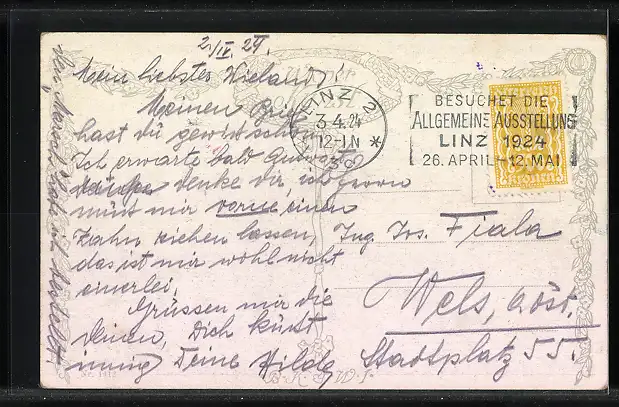 2./IV. 24.
Mein liebster Wieland!
Meinen Brief
hast du gewiß schon.
Ich erwarte bald
denke dir, ich
muß mir vorne einen
Zahn ziehen lassen,
das ist mir wohl nicht
einerlei.
Grüssen mir die
Deinen, Dich küsst
innig Deine Hilde
LINZ 2
3.4.24
12-1N
BESUCHET DIE
ALLGEMEINE AUSSTELLUNG
LINZ 1924
26. APRIL-12. MAI
kronen
Ing. Jos. Fiala
Wels, O.öst.
Stadtplatz 55.